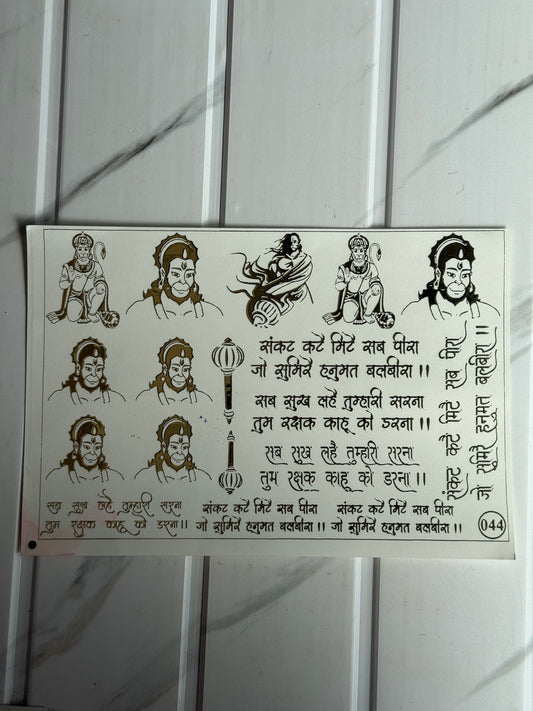 संकट कटै मिटै सब पीरा
जो सुमिरै हनुमत बलबीरा ।।
सब सुख लहै तुम्हारी सरना
तुम रक्षक काहू को डरना ।।
सब सुख लहै तुम्हारी सरना
तुम रक्षक काहू को डरना ।।
संकट कटै मिटै सब पीरा
जो सुमिरै हनुमत बलबीरा ।।
सब सुख लहै तुम्हारी सरना
तुम रक्षक काहू को डरना ।।
संकट कटै मिटै सब पीरा
जो सुमिरै हनुमत बलबीरा ।।
संकट कटै मिटै सब पीरा
जो सुमिरै हनुमत बलबीरा ।।
044